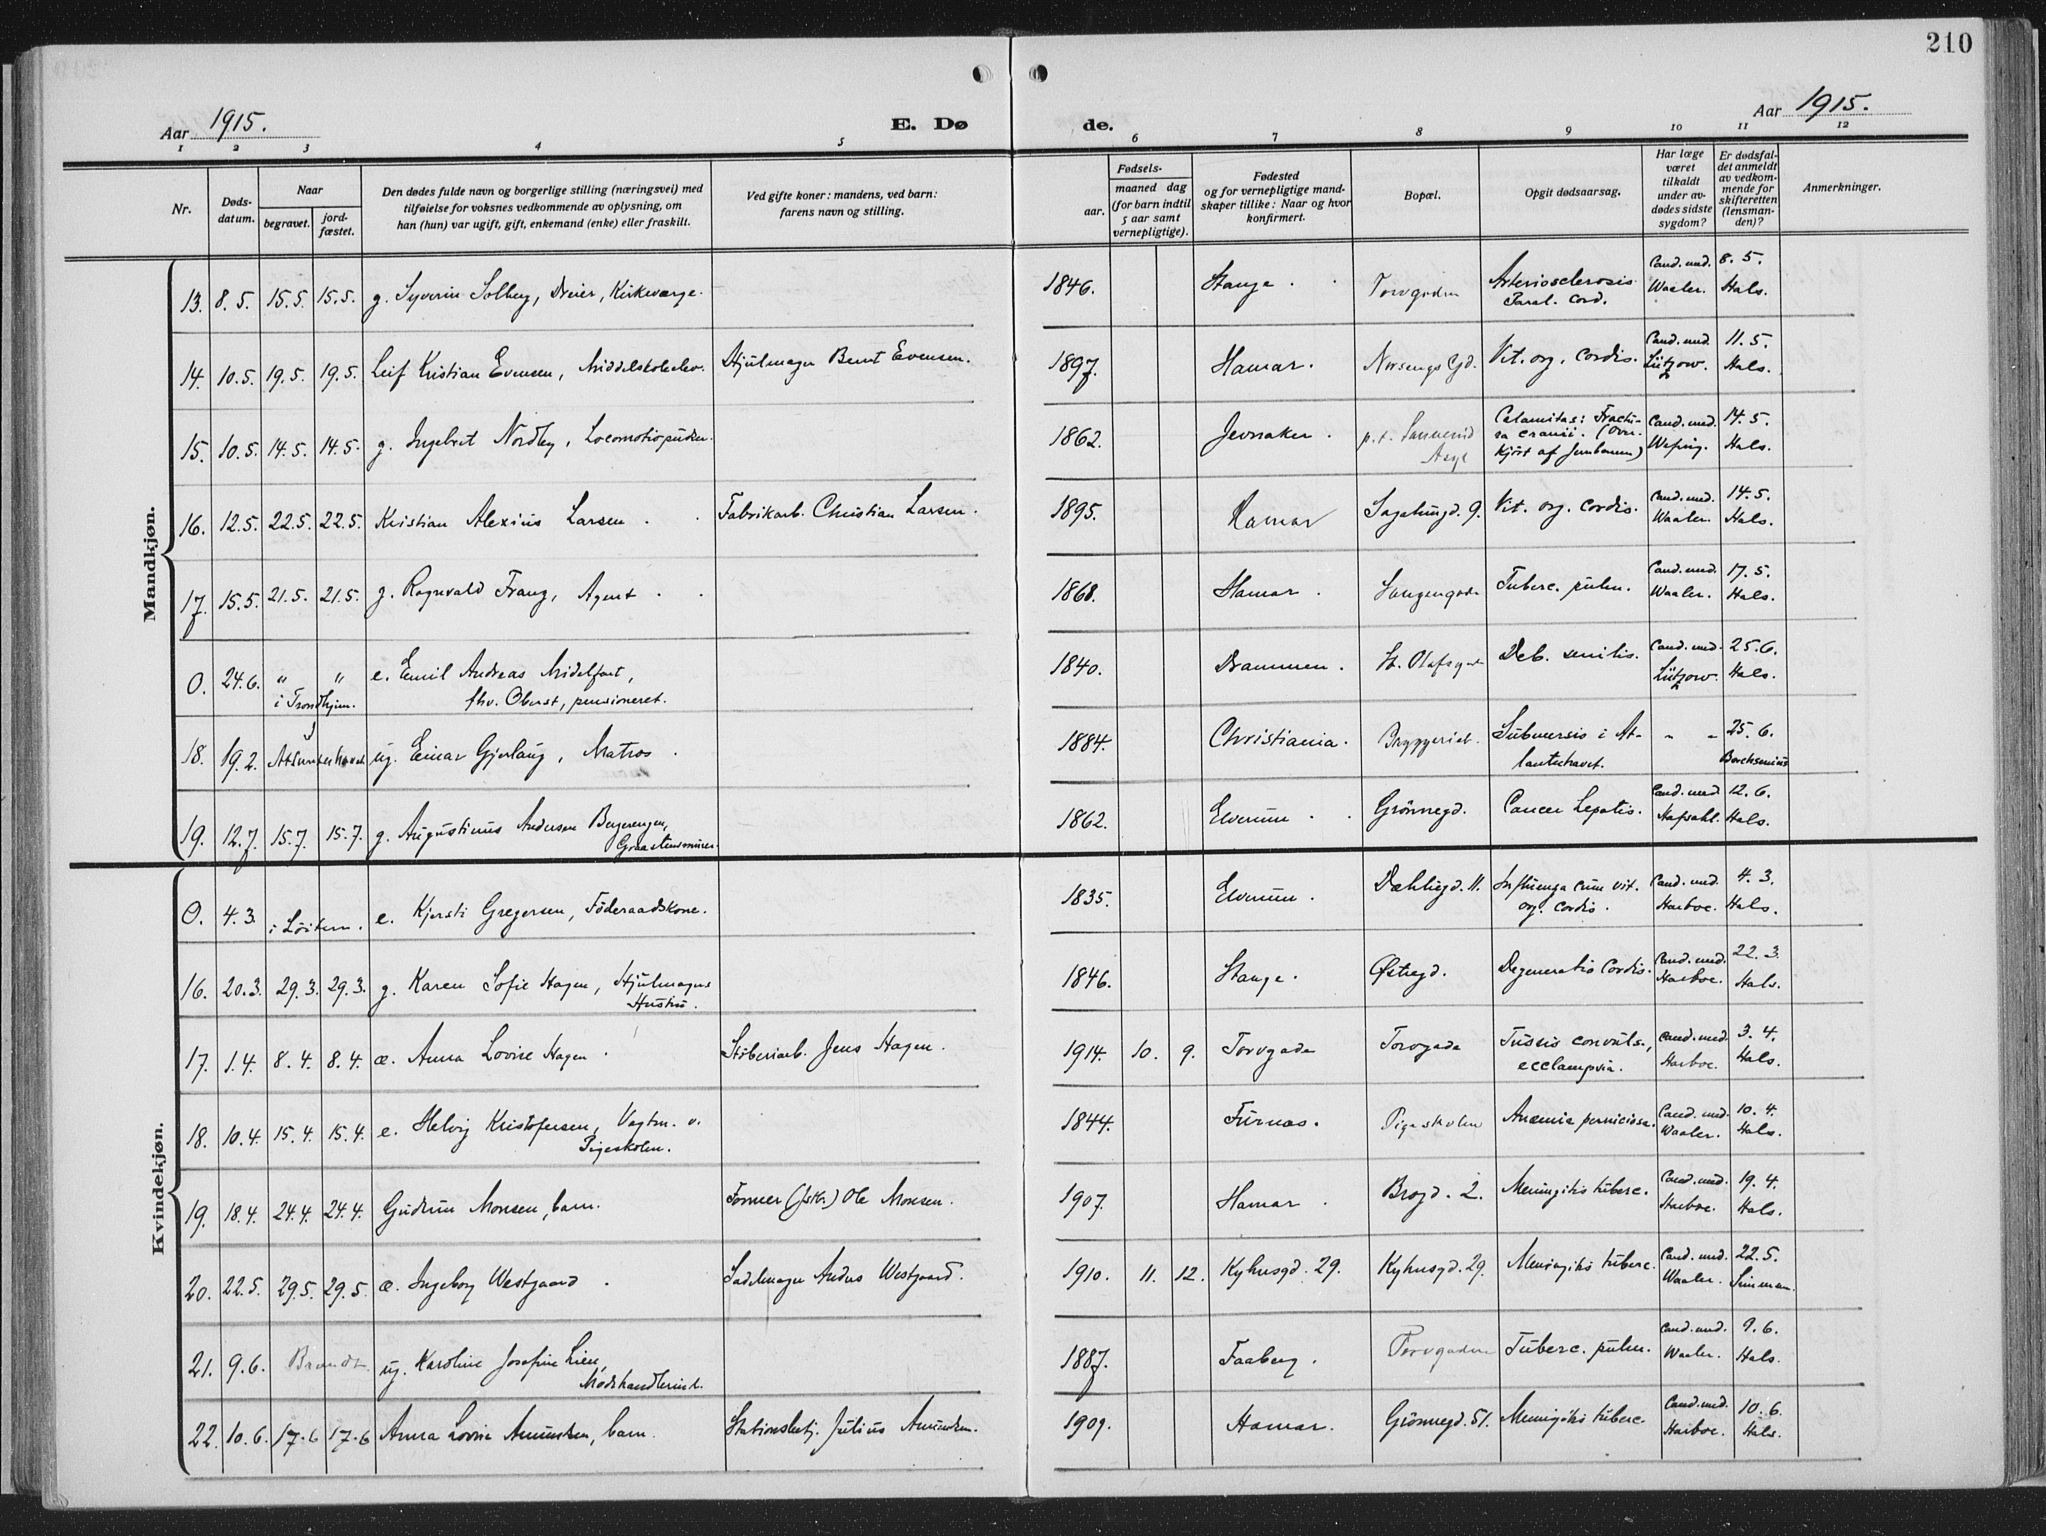 210
Aar 1915.
E. Dø
de.
Aar 1915.
1 2 3 4 5 6 7 8 9 10 11 12
Nr.
Døds-
datum.
Naar
begravet.
jord-
fæstet.
Den dødes fulde navn og borgerlige stilling (næringsvei) med
tilføielse for voksnes vedkommende av oplysning, om
han (hun) var ugift, gift, enkemand (enke) eller fraskilt.
Ved gifte koner: mandens, ved barn:
farens navn og stilling.
aar.
Fødsels-
maaned dag
(for barn indtil
5 aar samt
vernepligtige).
Fødested
og for vernepligtige mand-
skaper tillike: Naar og hvor
konfirmert.
Bopæl.
Opgit dødsaarsag.
Har læge
været
tilkaldt
under av-
dødes sidste
sygdom?
Er dødsfal-
det anmeldt
av vedkom-
mende for
skifteretten
(lensman-
den)?
Anmerkninger.
Mandkjøn.
13. 8.5. 15.5. 15.5. g. Syverin Solberg, Dreier, Kirkeverge. 1846. Stange. Torvgaden Arteriosclerosis Cand. med. 8.5.
Paral. cord. Waaler. Hals.
14. 10.5. 19.5. 19.5. Leif Kristian Evensen, Middelskoleelev. Hjulmager Bernt Evensen. 1897. Hamar. Norsengs Gd. Vit. org. cordis. Cand. med. 11.5.
Lützow. Hals.
15. 10.5. 14.5. 14.5. g. Ingebret Nordby, Locomotivpudser. 1862. Jevnaker. p.t. Sannerud Calamitas: Fractu- Cand. med. 14.5.
Asyl ra cranii. (Over- Hals.
kjört af Jernbanen)
16. 12.5. 22.5. 22.5. Kristian Alexius Larsen. Fabrikarb. Christian Larsen. 1895. Hamar Sagatungd. 9. Vit. org. cordis. Cand. med. 14.5.
Waaler. Hals.
17. 15.5. 21.5. 21.5. g. Ragnvald Franz, Agent. 1868. Hamar. Tuberc. pulm. Cand. med. 17.5.
Waaler. Hals.
0. 24.6. " " e. Emil Andreas Midelfart, 1840. Drammen. St. Olafsgt Deb. senilis. Cand. med. 25.6.
i Trondhjem. fhv. Oberst, pensioneret. Lützow. Hals.
18. 19.2. Atlanterhavet ug. Einar Gjerlaug, Matros. 1884. Christiania. Bryggeriet. Submersis i At- " " 25.6.
lanterhavet. Borchsenius
19. 12.7. 15.7. 15.7. g. Augustinus Andersen Bergerengen, 1862. Elverum. Grönnegd. Cancer hepatis. Cand. med 12.6.
Graastensmurer. Hafsahl. Hals.
Kvindekjøn.
0. 4.3. i Löiten. e. Kjersti Gregersen, Föderaadskone. 1835. Elverum. Dæhligd. 11. Influenza cum vit. Cand. med. 4.3.
org. cordis. Harboe. Hals.
16. 20.3. 29.3. 29.3. g. Karen Sofie Hagen, Hjulmagers 1846. Stange. Østregd. Degeneratio Cordis. Cand. med. 22.3.
Hustru. Harboe. Hals.
17. 1.4. 8.4. 8.4. æ. Anna Lovise Hagen. Stöberiarb. Jens Hagen. 1914. 10. 9. Torvgade Torvgade Tussis convuls., Cand. med. 3.4.
ecclampsia. Harboe. Hals.
18. 10.4. 15.4. 15.4. e. Helvig Kristofersen, Vagtm. v. 1844. Furnes. Pigeskolen Anæmia perniciosa. Cand. med. 10.4.
Pigeskolen. Waaler. Hals.
19. 18.4. 24.4. 24.4. Gudrun Monsen, barn. Former (fskr.) Ole Monsen. 1907. Hamar. Brogd. 2. Meningitis tuberc. Cand. med. 19.4.
Harboe. Hals.
20. 22.5. 29.5. 29.5. æ. Ingeborg Westgaard. Sadelmager Anders Westgaard. 1910. 11. 12. Kyhusgd. 29. Kyhusgd. 29. Meningitis tuberc. Cand. med. 22.5.
Waaler. Simensen.
21. 9.6. Brændt ug. Karoline Josefine Lien, 1887. Faaberg. Torvgaden Tuberc. pulm. Cand. med. 9.6.
Modehandlerind. Waaler. Hals.
22. 10.6. 17.6 17.6 Anna Lovise Amundsen, barn. Stationsbetj. Julius Amundsen. 1909. Hamar. Grönnegd. 51. Meningitis tuberc. Cand. med. 10.6.
Harboe. Hals.